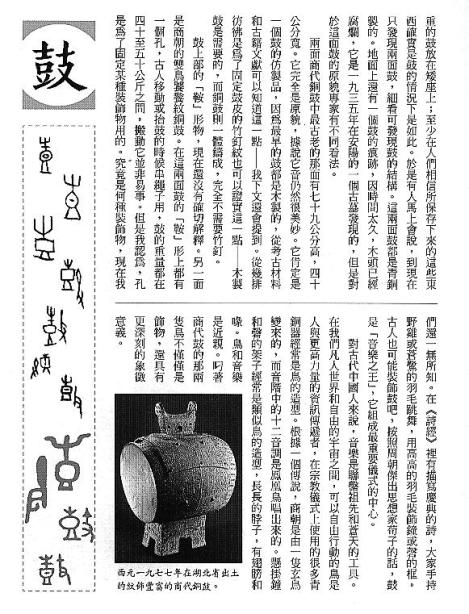 重的鼓放在矮座上；至少在人們相信所保存下來的這些東
西確實是鼓的情況下是如此。於是有人馬上會說，到現在
只發現兩面鼓，細看可發現鼓的結構。這兩面鼓都是青銅
製的。地面上還有一個鼓的痕跡，因時間太久，木頭已經
腐爛，它是一九三五年在安陽的一個古墓發現的，但是對
於這面鼓的原貌專家有不同看法。
兩面商代銅鼓中最古老的那面有七十九公分高，四十
公分寬。它完全是原貌，據說它音仍然很美妙。它肯定是
一個鼓的仿製品，因爲最早的鼓都是木製的，從考古材料
和古籍文獻可以知道這一點——我下文還會提到。從幾排
彷彿是爲了固定鼓皮的竹釘紋也可以證實這一點　木製
鼓是需要的，而銅鼓則一體鑄成，完全不需要竹釘。
鼓上部的「鞍」形物，現在還沒有確切解釋。另一面
是商朝的雙鳥饕餮紋銅鼓。在這兩面鼓的「鞍」形上都有
一個孔，古人移動或抬鼓的時候串繩子用，鼓的重量都在
四十至五十公斤之間，搬動它並非易事。但是我認爲，孔
是爲了固定某種裝飾物用的。究竟是何種裝飾物，現在我
們還一無所知。在《詩經》裡有描寫慶典的詩，大家手持
野雞或蒼鷺的羽毛跳舞，用高高的羽毛裝飾鐘或磬的框，
古人也可能裝飾鼓吧。按照周朝傑出思想家荀子的話，鼓
是「音樂之王」，它組成最重要儀式的中心。
對古代中國人來說，音樂是聯繫祖先和蒼天的工具。
在我們凡人世界和自由的宇宙之間，可以自由行動的鳥是
人與更高力量的資訊傳遞者，在宗教儀式上使用的很多青
銅器經常是鳥的造型。根據一個傳說，商朝是由一隻玄鳥
變來的，而音階中的十二音調是鳳凰鳥唱出來的。懸掛鐘
和磬的架子經常是類似鳥的造型，長長的脖子，有翅膀和
喙。鳥和音樂
是近親。呵著
商代鼓的那兩
隻鳥不僅僅是
飾物，還具有
更深刻的象徵
意義。
西元一九七七年在湖北省出土
的紋飾豐富的商代銅鼓。
鼓